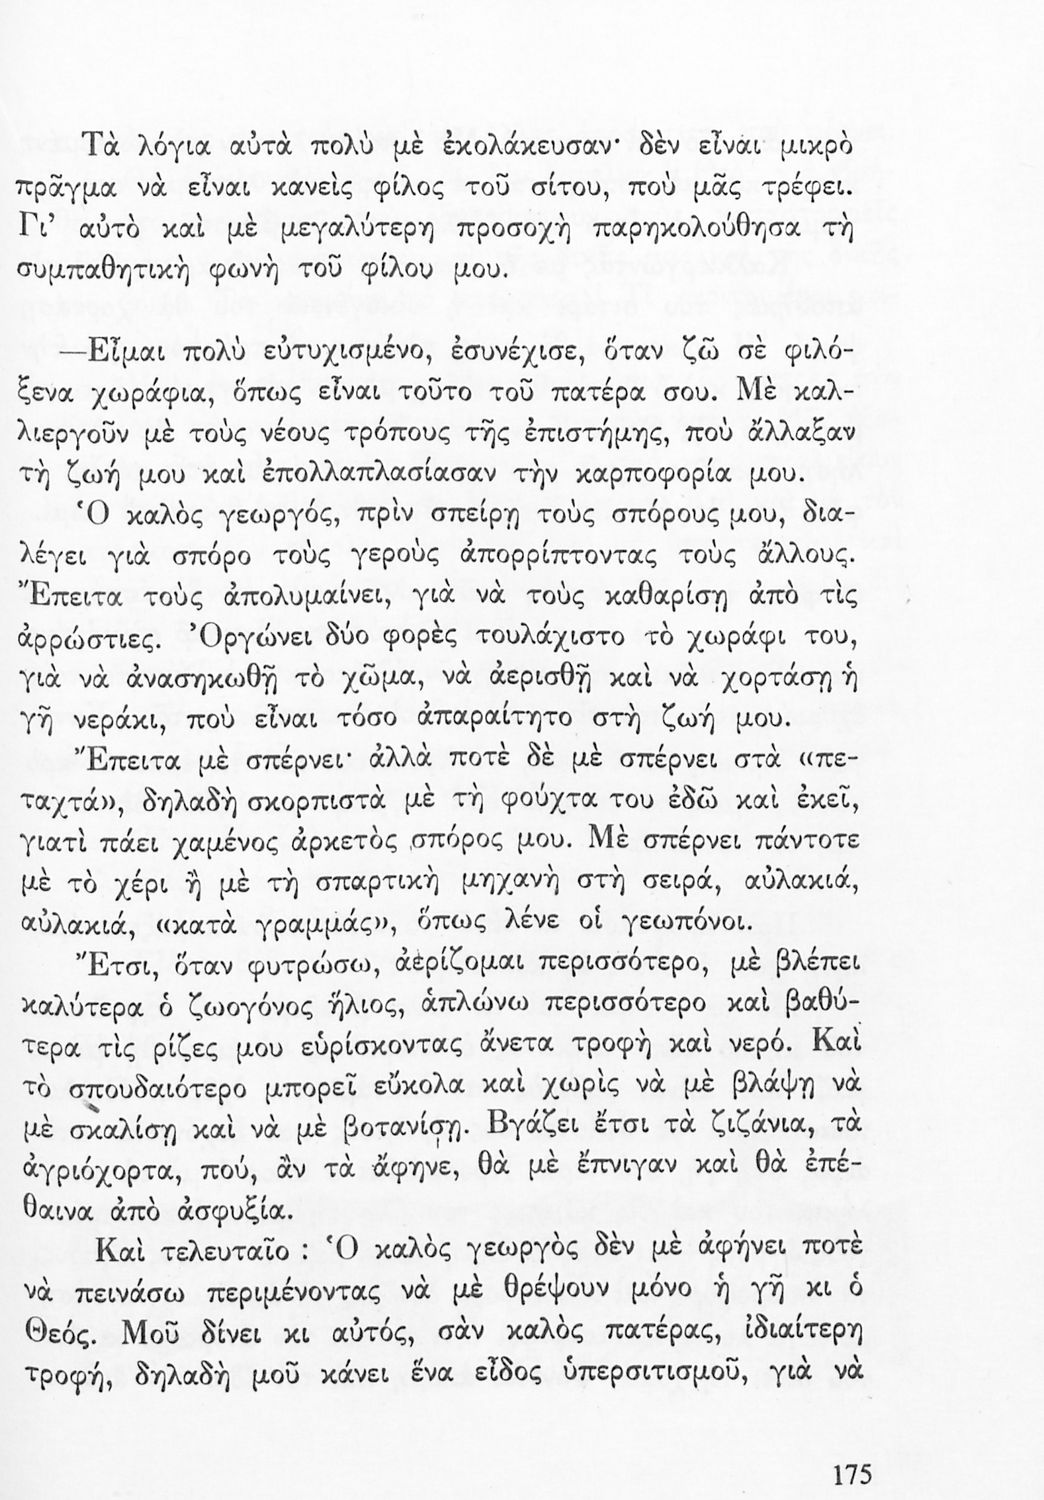 Τὰ λόγια αὐτὰ πολὺ μὲ ἐκολάκευσαν· δὲν εἶναι μικρὸ
πρᾶγμα νὰ εἶναι κανεὶς φίλος τοῦ σίτου, ποὺ μᾶς τρέφει.
Γι’ αὐτὸ καὶ μὲ μεγαλύτερη προσοχὴ παρηκολούθησα τὴ
συμπαθητικὴ φωνὴ τοῦ φίλου μου.
—Εἶμαι πολὺ εὐτυχισμένο, ἐσυνέχισε, ὅταν ζῶ σὲ φιλό-
ξενα χωράφια, ὅπως εἶναι τοῦτο τοῦ πατέρα σου. Μὲ καλ-
λιεργοῦν μὲ τοὺς νέους τρόπους τῆς ἐπιστήμης, ποὺ ἄλλαξαν
τὴ ζωή μου καὶ ἐπολλαπλασίασαν τὴν καρποφορία μου.
Ὁ καλὸς γεωργός, πρὶν σπείρῃ τοὺς σπόρους μου, δια-
λέγει γιὰ σπόρο τοὺς γεροὺς ἀπορρίπτοντας τοὺς ἄλλους.
Ἔπειτα τοὺς ἀπολυμαίνει, γιὰ νὰ τοὺς καθαρίσῃ ἀπὸ τὶς
ἀρρώστιες. Ὀργώνει δύο φορὲς τουλάχιστο τὸ χωράφι του,
γιὰ νὰ ἀνασηκωθῇ τὸ χῶμα, νὰ ἀερισθῇ καὶ νὰ χορτάσῃ ἡ
γῆ νεράκι, ποὺ εἶναι τόσο ἀπαραίτητο στὴ ζωή μου.
Ἔπειτα μὲ σπέρνει· ἀλλὰ ποτὲ δὲ μὲ σπέρνει στὰ «πε-
ταχτά», δηλαδὴ σκορπιστὰ μὲ τὴ φούχτα του ἐδῶ καὶ ἐκεῖ,
γιατὶ πάει χαμένος ἀρκετὸς σπόρος μου. Μὲ σπέρνει πάντοτε
μὲ τὸ χέρι ἢ μὲ τὴ σπαρτικὴ μηχανὴ στὴ σειρά, αὐλακιά,
αὐλακιά, «κατὰ γραμμάς», ὅπως λένε οἱ γεωπόνοι.
Ἔτσι, ὅταν φυτρώσω, ἀερίζομαι περισσότερο, μὲ βλέπει
καλύτερα ὁ ζωογόνος ἥλιος, ἁπλώνω περισσότερο καὶ βαθύ-
τερα τὶς ρίζες μου εὑρίσκοντας ἄνετα τροφὴ καὶ νερό. Καὶ
τὸ σπουδαιότερο μπορεῖ εὔκολα καὶ χωρὶς νὰ μὲ βλάψῃ νὰ
μὲ σκαλίσῃ καὶ νὰ μὲ βοτανίσῃ. Βγάζει ἔτσι τὰ ζιζάνια, τὰ
ἀγριόχορτα, πού, ἂν τὰ ἄφηνε, θὰ μὲ ἔπνιγαν καὶ θὰ ἐπέ-
θαινα ἀπὸ ἀσφυξία.
Καὶ τελευταῖο : Ὁ καλὸς γεωργὸς δὲν μὲ ἀφήνει ποτὲ
νὰ πεινάσω περιμένοντας νὰ μὲ θρέψουν μόνο ἡ γῆ κι ὁ
Θεός. Μοῦ δίνει κι αὐτός, σὰν καλὸς πατέρας, ἰδιαίτερη
τροφή, δηλαδὴ μοῦ κάνει ἕνα εἶδος ὑπερσιτισμοῦ, γιὰ νὰ
175